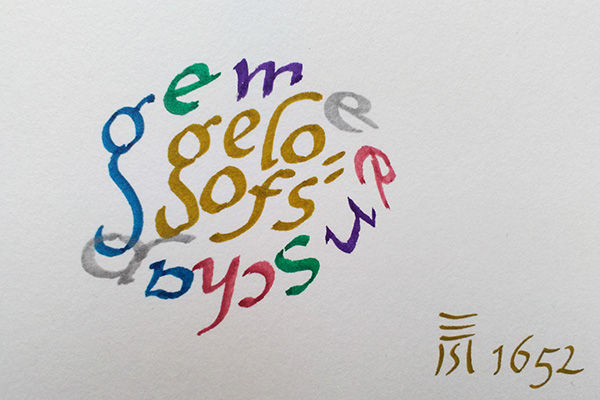 gemeenschap
gelo
ofs=
1652